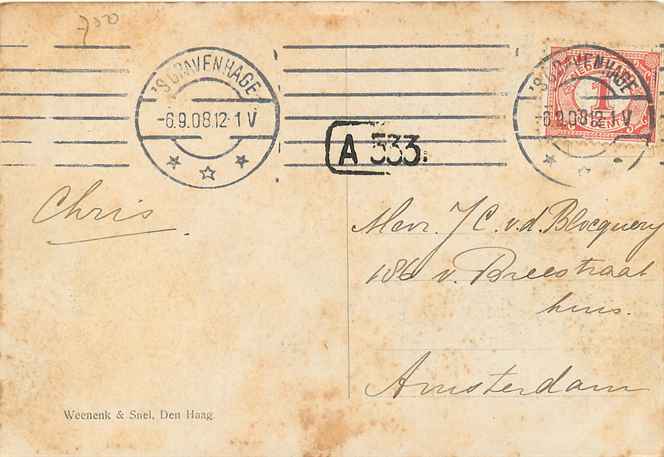 700
'S GRAVENHAGE
-6.9.08.12-1 V
'S GRAVENHAGE
-6.9.08.12-1 V
1
A 333.
Chris
Mevr. J C. v. d. Blocquery
186 v. Breestraat
huis.
Amsterdam
Weenenk & Snel, Den Haag